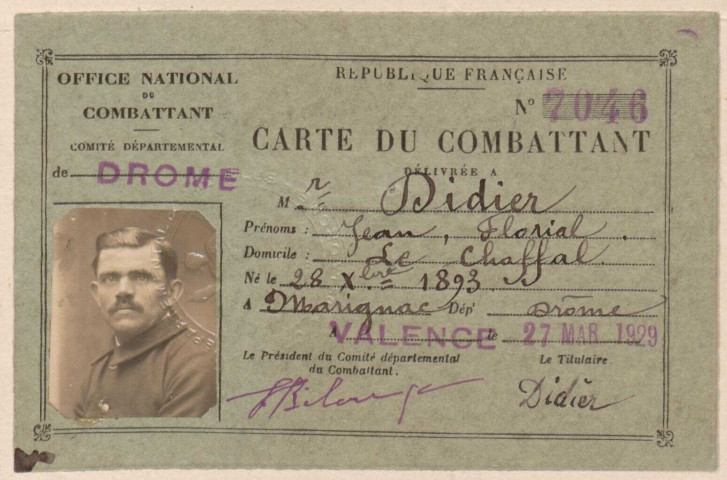 OFFICE NATIONAL
DU
COMBATTANT
COMITÉ DÉPARTEMENTAL
de DROME
RÉPUBLIQUE FRANÇAISE
N° 7046
CARTE DU COMBATTANT
DÉLIVRÉE A
M r Didier
Prénoms : Jean, Florial.
Domicile : Le Chaffal.
Né le 28 Xbre 1893
A Marignac Dépt Drôme
A VALENCE le 27 MAR 1929
Le Président du Comité départemental
du Combattant.
Le Titulaire.
Didier